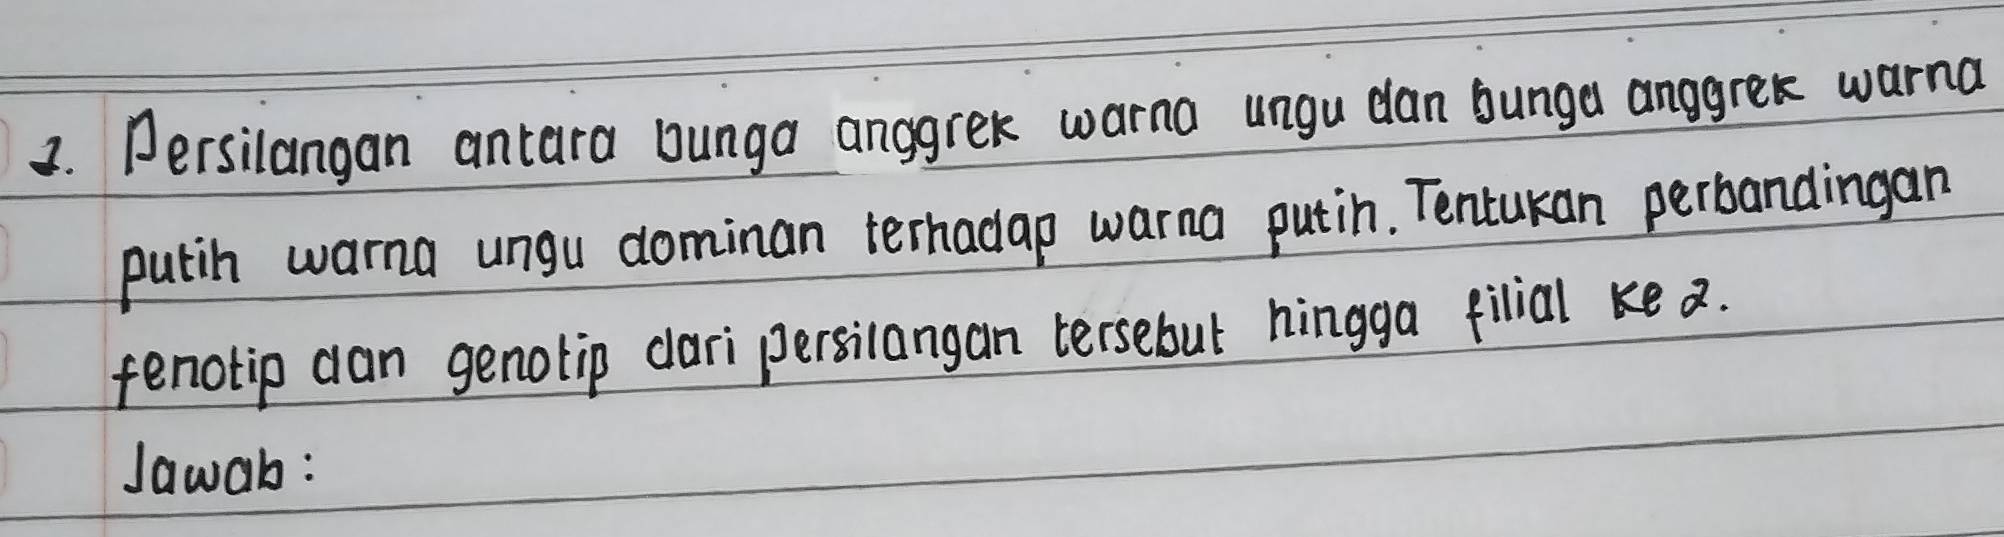 1. Persilangan antara bunga anggrek warna ungu dan bunga anggrek warna
putih warna ungu dominan terhadap warna putih. Tentukan perbandingan
fenotip dan genotip dari persilangan tersebut hingga filial ke 2.
Jawab: